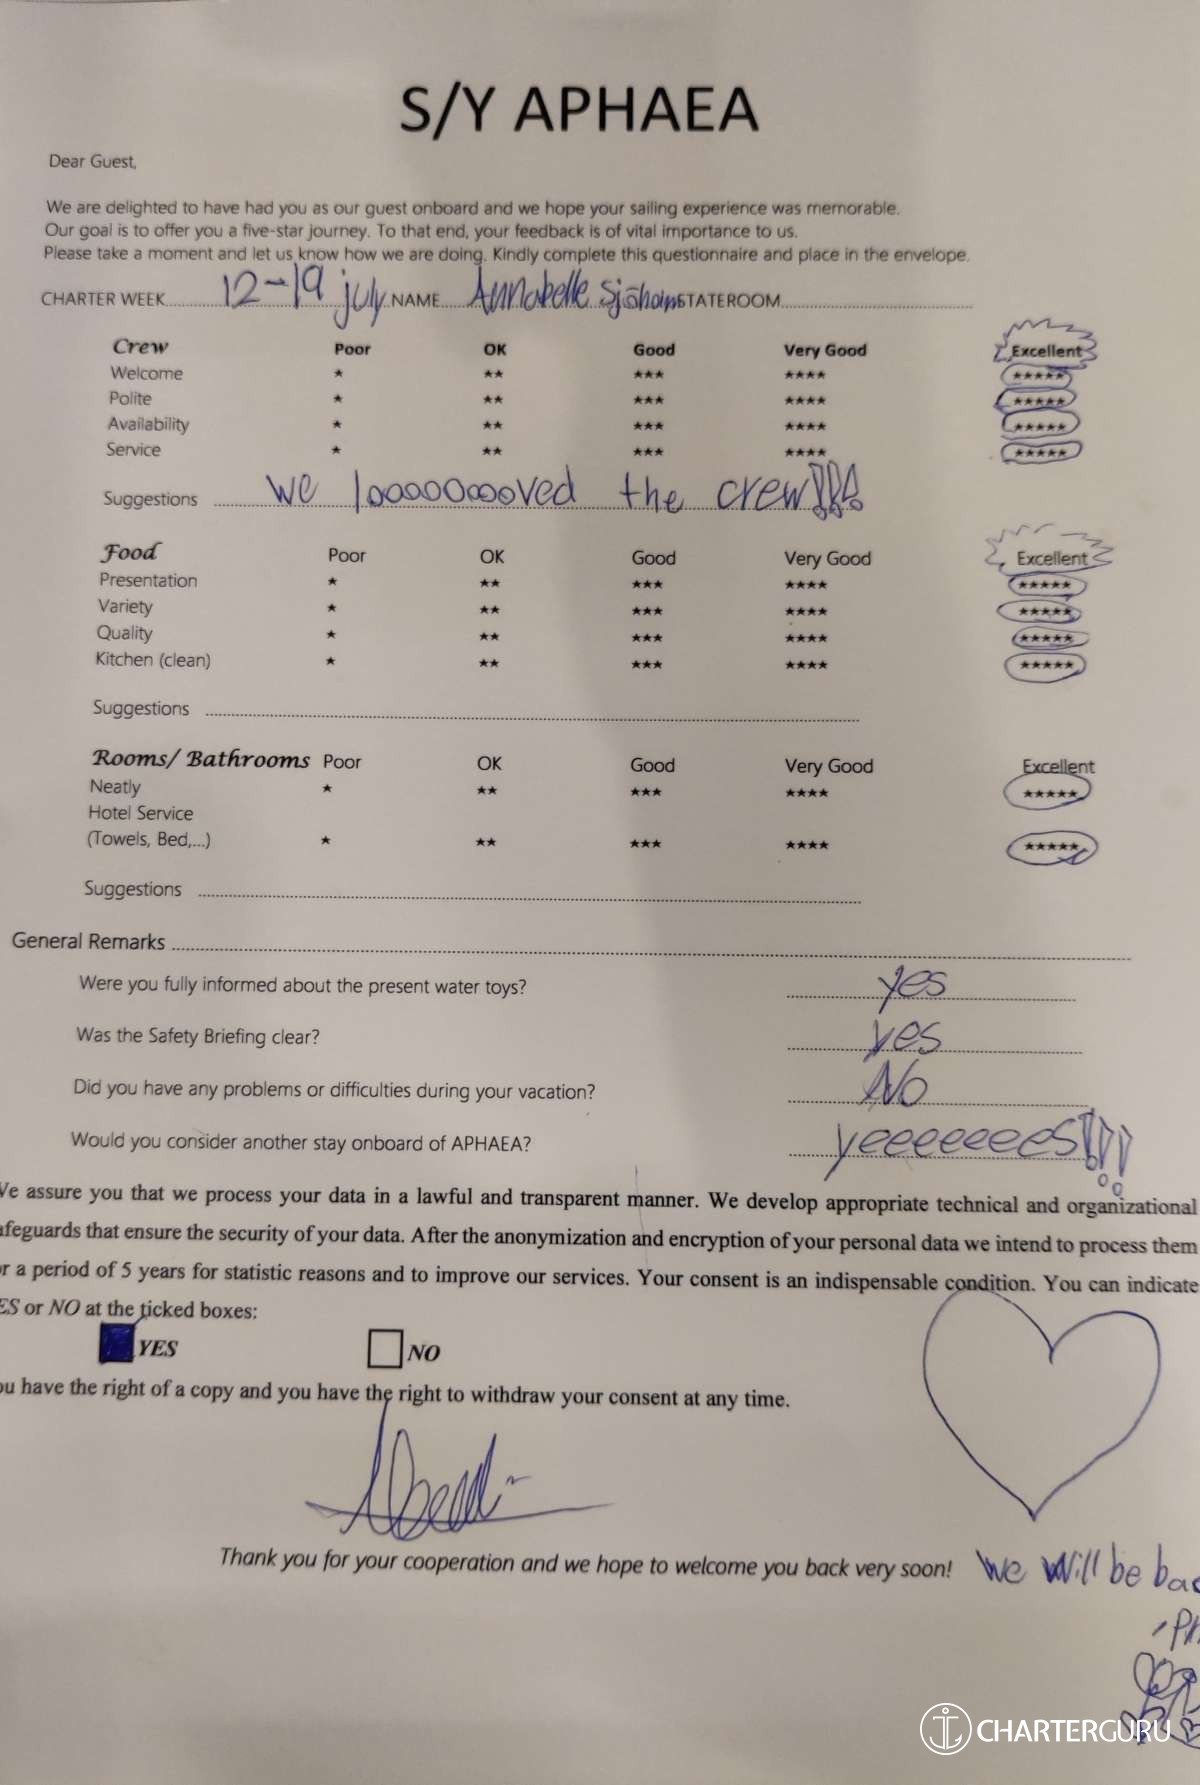 S/Y APHAEA
Dear Guest,
We are delighted to have had you as our guest onboard and we hope your sailing experience was memorable.
Our goal is to offer you a five-star journey. To that end, your feedback is of vital importance to us.
Please take a moment and let us know how we are doing. Kindly complete this questionnaire and place in the envelope.
CHARTER WEEK 12-19 july NAME Annabelle STATEROOM
Crew Poor OK Good Very Good Excellent
Welcome ★ ★★ ★★★ ★★★★ ★★★★★
Polite ★ ★★ ★★★ ★★★★ ★★★★★
Availability ★ ★★ ★★★ ★★★★ ★★★★★
Service ★ ★★ ★★★ ★★★★ ★★★★★
Suggestions we looooooooved the crew!!!
Food Poor OK Good Very Good Excellent
Presentation ★ ★★ ★★★ ★★★★ ★★★★★
Variety ★ ★★ ★★★ ★★★★ ★★★★★
Quality ★ ★★ ★★★ ★★★★ ★★★★★
Kitchen (clean) ★ ★★ ★★★ ★★★★ ★★★★★
Suggestions
Rooms/ Bathrooms Poor OK Good Very Good Excellent
Neatly ★ ★★ ★★★ ★★★★ ★★★★★
Hotel Service
(Towels, Bed,...) ★ ★★ ★★★ ★★★★ ★★★★★
Suggestions
General Remarks
Were you fully informed about the present water toys? yes
Was the Safety Briefing clear? yes
Did you have any problems or difficulties during your vacation? No
Would you consider another stay onboard of APHAEA? yeeeeeees!!!
We assure you that we process your data in a lawful and transparent manner. We develop appropriate technical and organizational
afeguards that ensure the security of your data. After the anonymization and encryption of your personal data we intend to process them
or a period of 5 years for statistic reasons and to improve our services. Your consent is an indispensable condition. You can indicate
ES or NO at the ticked boxes:
YES NO
ou have the right of a copy and you have the right to withdraw your consent at any time.
Thank you for your cooperation and we hope to welcome you back very soon! We will be bac
CHARTERGURU